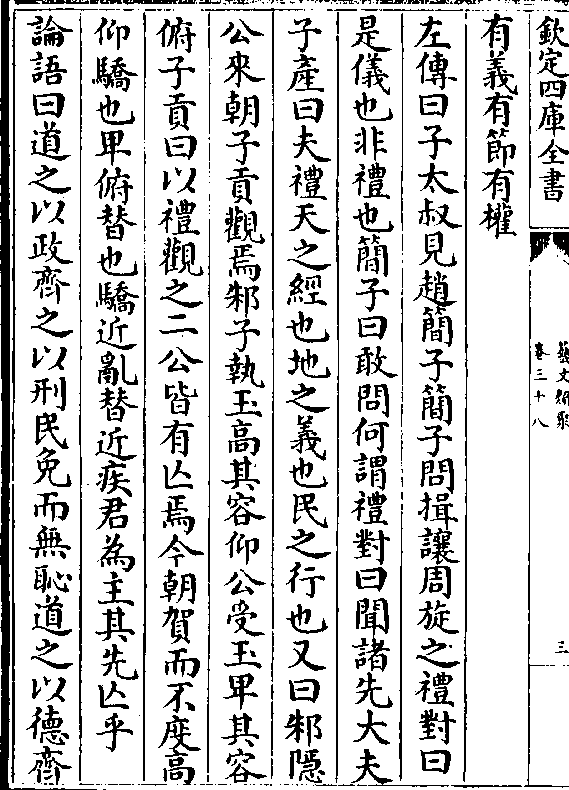 欽定四庫全書
藝文類聚
卷三十八
三
有義有節有權
左傳曰子太叔見趙簡子簡子問揖讓周旋之禮對曰
是儀也非禮也簡子曰敢問何謂禮對曰聞諸先大夫
子產曰夫禮天之經也地之義也民之行也又曰邾隱
公來朝子貢觀焉邾子執玉高其容仰公受玉卑其容
俯子貢曰以禮觀之二公皆有亾焉今朝賀而不度高
仰驕也卑俯替也驕近亂替近疾君為主其先亾乎
論語曰道之以政齊之以刑民免而無恥道之以德齊